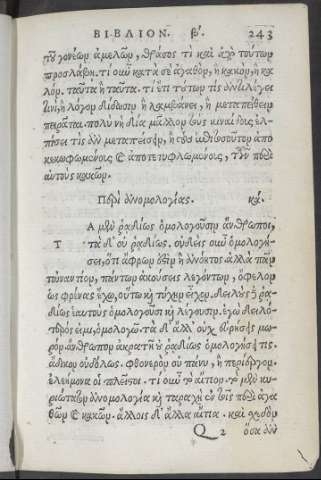 ΒΙΒΛΙΟΝ. β'. 243
τῶν γονέων ἀμελῶν, θράσος τι καὶ τούτων
προσλάβῃ. τί οὖν κατὰ σὲ ἀγαθὸν, ἢ κακὸν, ἢ κα
λόν. ταῦτα ἢ ταῦτα. τί ἔτι τούτων τὶς ἀντιλέγει
τινὶ, ἢ λόγον δίδωσιν ἢ λαμβάνει, ἢ μεταπείθειν
πειρᾶται. πολὺ νὴ δία μᾶλλον τοὺς κιναίδους ἐλ-
πίσει τὶς ἂν μεταπείσειν, ἢ τοὺς ἐπὶ τοσοῦτον ἀπο
κεκωφωμένους καὶ ἀποτετυφλωμένους, τῶν περὶ
αὐτοὺς κακῶν.
Περὶ ἀνομολογίας. κά.
Α μὲν ῥᾳδίως ὁμολογοῦσιν ἄνθρωποι,
Τ τὰ δ' οὐ ῥᾳδίως. οὐδεὶς οὖν ὁμολογή-
σει, ὅτι ἄφρων ἐστὶν ἢ ἀνόητος ἀλλὰ πᾶν
τοὐναντίον, πάντων ἀκούσεις λεγόντων, ὤφελον
ὡς φρένας ἔχω, οὕτω καὶ τύχην εἶχον. δειλοὺς δὲ ῥᾳ
δίως ἑαυτοὺς ὁμολογοῦσι καὶ λέγουσιν. ἐγὼ δειλό-
τερός εἰμι, ὁμολογῶ. τὰ δ' ἄλλ' οὐχ εὑρήσεις μω
ρὸν ἄνθρωπον ἀκρατῆ οὐ ῥᾳδίως ὁμολογήσει τις.
ἄδικον οὐδ' ὅλως. φθονερὸν οὐ πάνυ, ἢ περίεργον.
ἐλεήμονα οἱ πλεῖστοι. τί οὖν τὸ αἴτιον. τὸ μὲν κυ-
ριώτατον ἀνομολογία καὶ ταραχὴ ἐν τοῖς περὶ ἀγα
θῶν καὶ κακῶν. ἄλλοις δ' ἄλλα αἴτια. καὶ σχεδὸν
Q 2 ὅσα ἂν